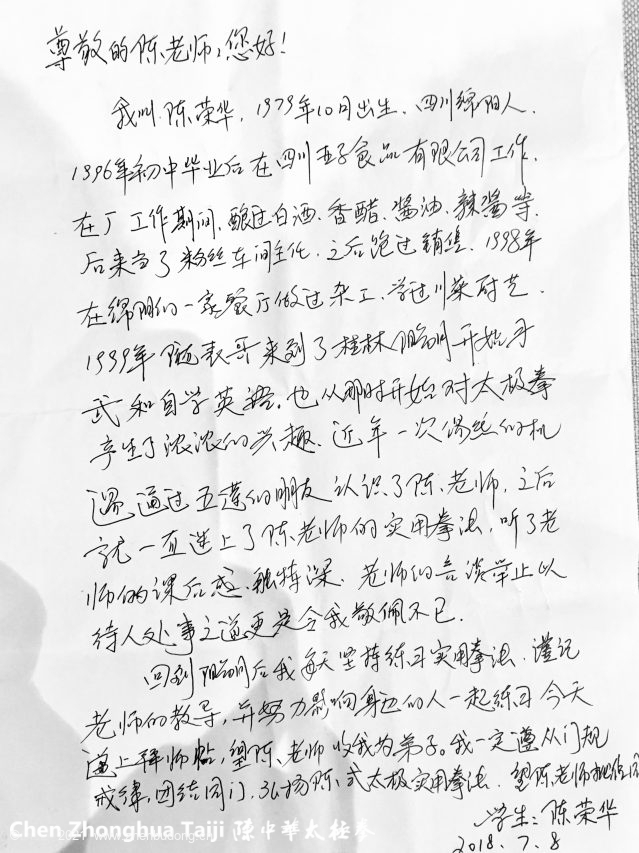 尊敬的陈老师,您好!
我叫陈荣华,1979年10月出生,四川绵阳人,
1996年初中毕业后在四川 食品有限公司工作,
在厂工作期间,酿过白酒、香醋、酱油、辣酱等,
后来当了粉丝车间主任,之后跑过销售,1998年
在绵阳的一家餐厅做过杂工,学过川菜厨艺,
1999年随表哥来到了桂林阳朔开始习
武和自学英语,也从那时开始对太极拳
产生了浓浓的兴趣,近年一次偶然的机
遇通过五莲的朋友认识了陈老师,之后
就一直迷上了陈老师的实用拳法,听了老
师的课后感触特深,老师的言谈举止以
待人处事之道更是令我敬佩不已.
回到阳朔后我每天坚持练习实用拳法,谨记
老师的教导,并努力影响身边的人一起练习今天
递上拜师帖,望陈老师收我为弟子。我一定遵从门规
戒律,团结同门,弘扬陈式太极实用拳法,望陈老师批
学生:陈荣华
2018.7.8
Chen Zhonghua Taiji 陳中華太極拳